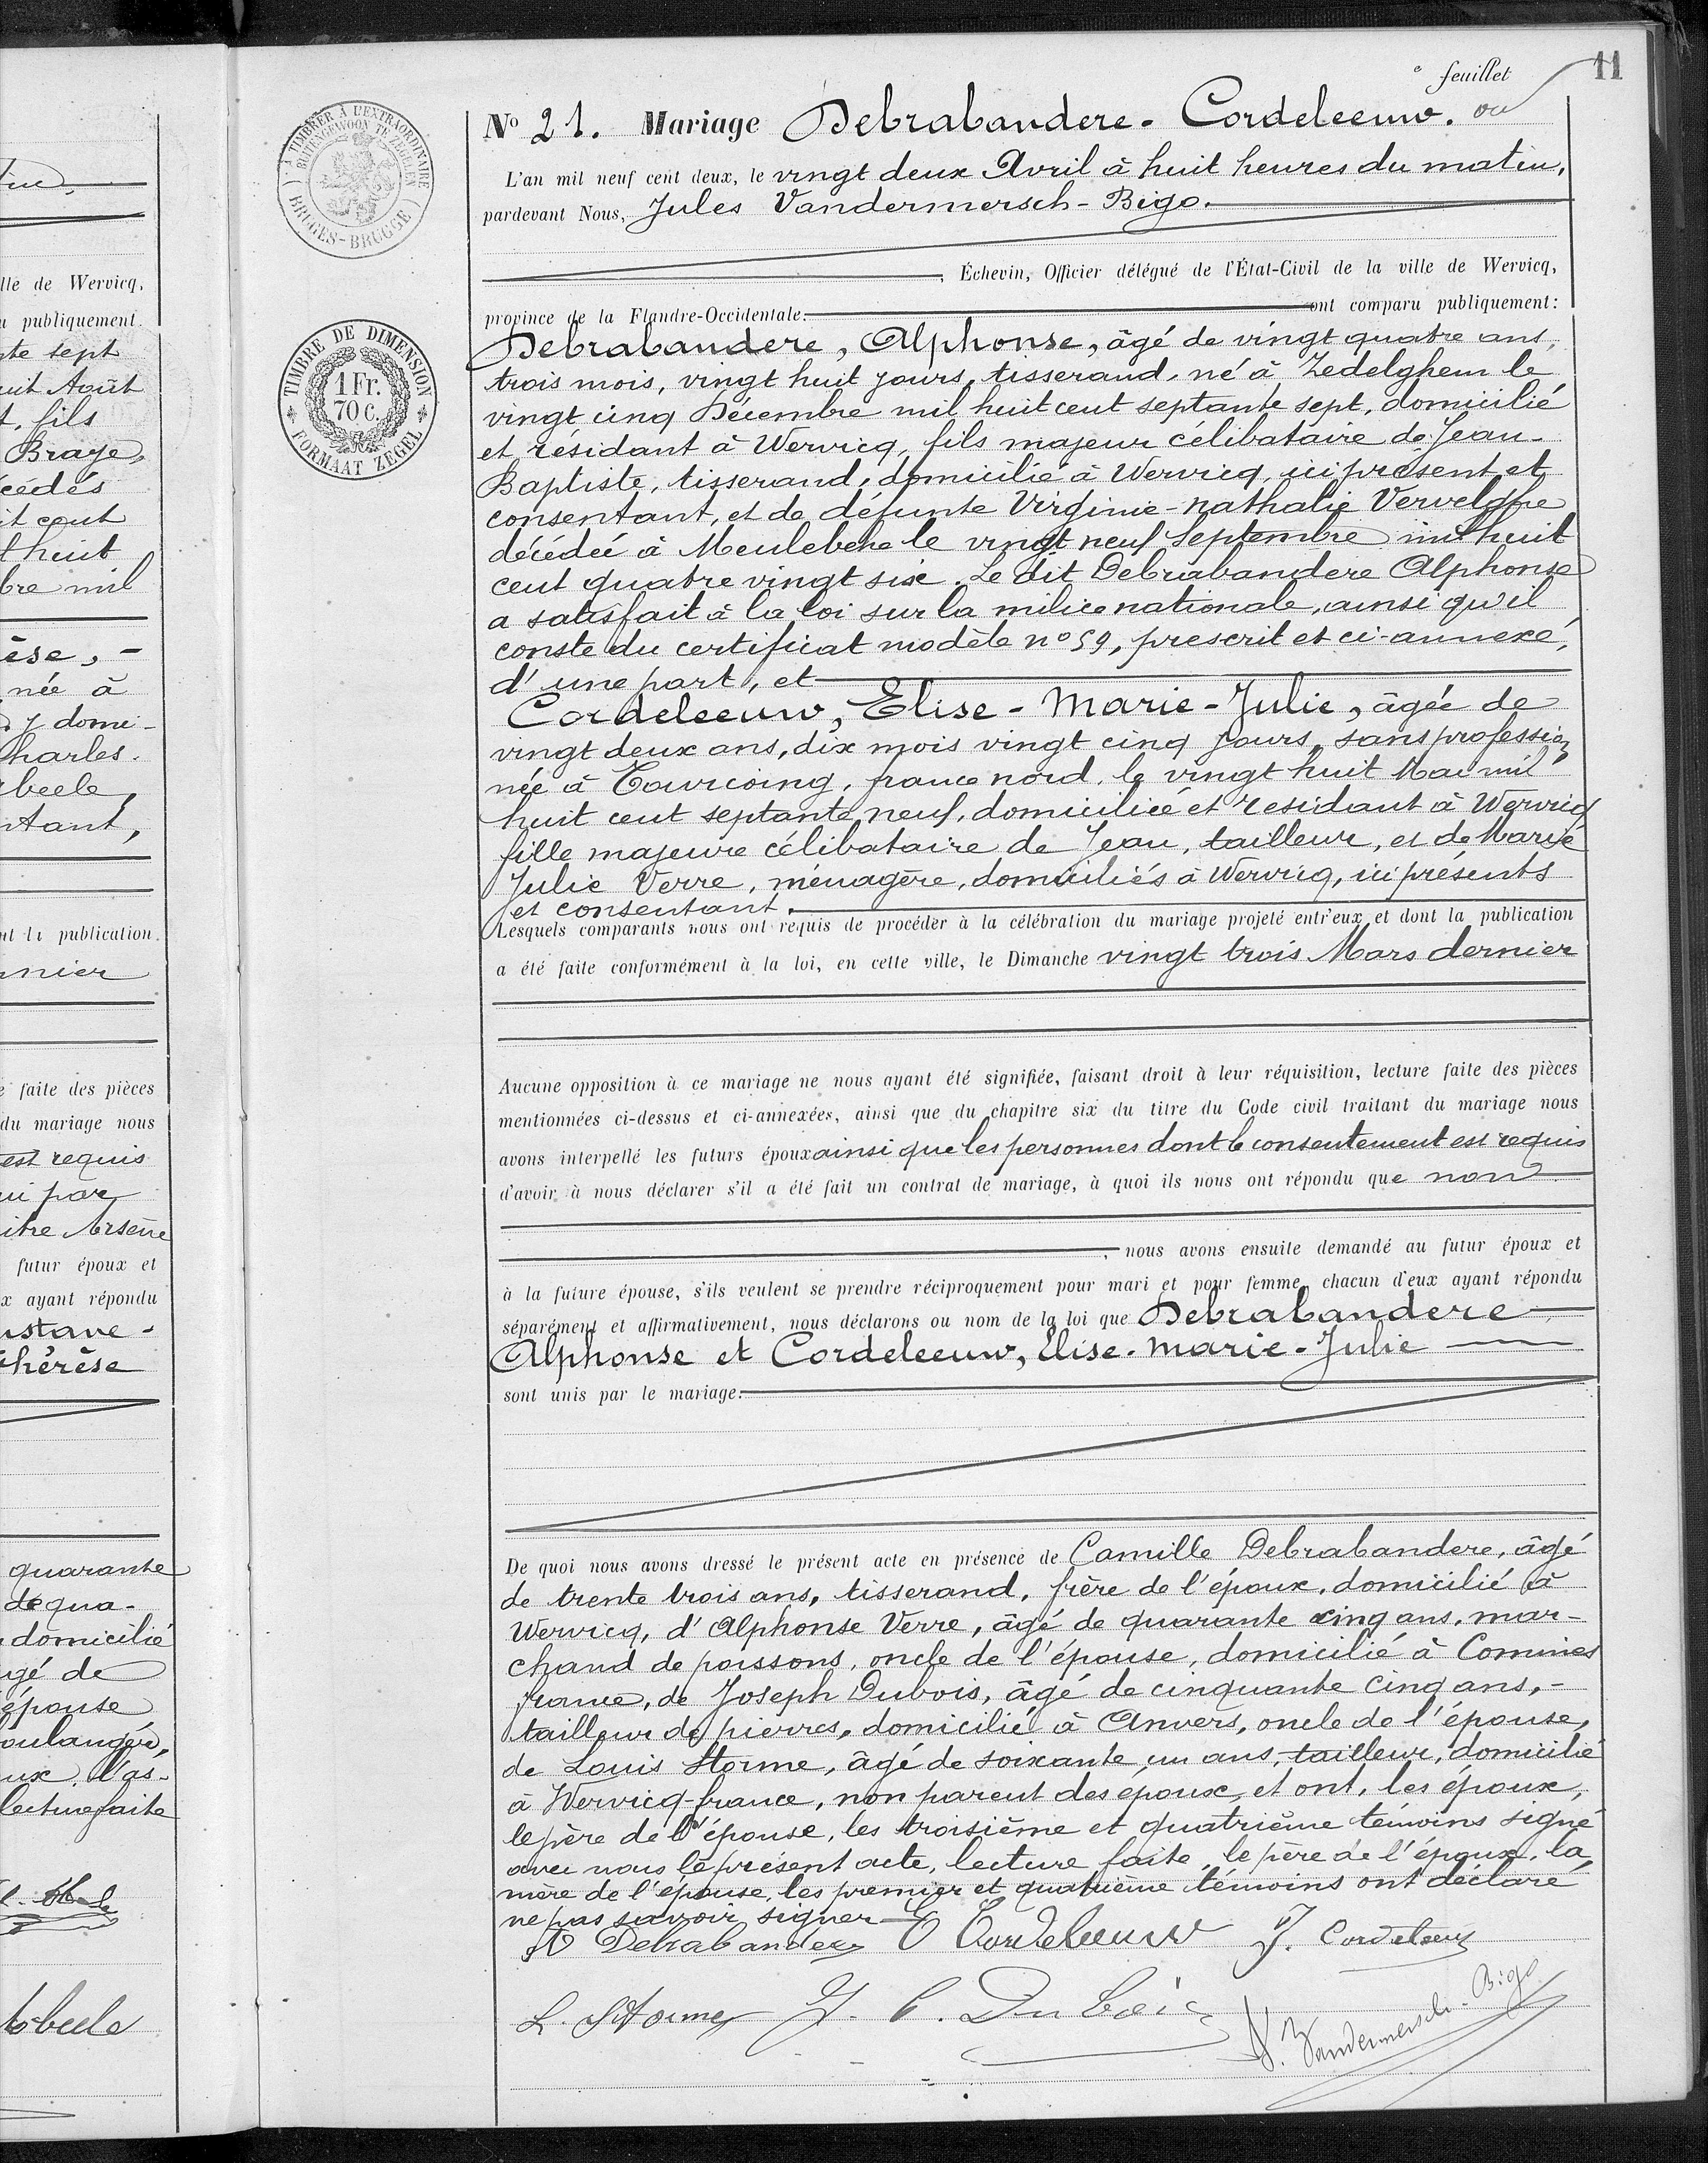 11
e feuillet
No 21. Mariage Debrabandere - Cordeleeuw. ou
L'an mil neuf cent deux, le vingt deux Avril à huit heures du matin,
pardevant Nous, Jules Vandermersch-Bigo.
, Échevin, Officier délégué de l'État-Civil de la ville de Wervicq,
province de la Flandre-Occidentale. ont comparu publiquement:
Debrabandere, Alphonse, âgé de vingt quatre ans,
trois mois, vingt huit jours, tisserand, né à Zedelghem le
vingt cinq Décembre mil huit cent septante sept, domicilié
et résidant à Wervicq, fils majeur célibataire de Jean-
Baptiste, tisserand, domicilié à Wervicq, ici présent et
consentant, et de défunte Virginie-nathalie
décédée à Meulebeke le vingt neuf Septembre mil huit
cent quatre vingt six. Le dit Debrabandere Alphonse
a satisfait à la loi sur la milice nationale, ainsi qu'il
conste du certificat modèle no 59, prescrit et ci-annexé,
d'une part, et
Cordeleeuw, Elise-Marie-Julie, âgée de
vingt deux ans, dix mois vingt cinq jours, sans profession
née à Tourcoing, france nord, le vingt huit Mai mil
huit cent septante neuf, domiciliée et résidant à Wervicq
fille majeure célibataire de Jean, tailleur, et de Marie
Julie Verre, ménagère, domiciliés à Wervicq, ici présents
et consentant.
Lesquels comparants nous ont requis de procéder à la célébration du mariage projeté entr'eux et dont la publication
a été faite conformément à la loi, en cette ville, le Dimanche vingt trois Mars dernier
Aucune opposition à ce mariage ne nous ayant été signifiée, faisant droit à leur réquisition, lecture faite des pièces
mentionnées ci-dessus et ci-annexées, ainsi que du chapitre six du titre du Code civil traitant du mariage nous
avons interpellé les futurs époux ainsi que les personnes dont le consentement est requis
d'avoir à nous déclarer s'il a été fait un contrat de mariage, à quoi ils nous ont répondu que non
, nous avons ensuite demandé au futur époux et
à la future épouse, s'ils veulent se prendre réciproquement pour mari et pour femme, chacun d'eux ayant répondu
séparément et affirmativement, nous déclarons ou nom de la loi que Debrabandere
Alphonse et Cordeleeuw, Elise-Marie-Julie
sont unis par le mariage.
De quoi nous avons dressé le présent acte en présence de Camille Debrabandere, âgé
de trente trois ans, tisserand, frère de l'époux, domicilié à
Wervicq, d'Alphonse Verre, âgé de quarante cinq ans, mar-
chand de poissons, oncle de l'épouse, domicilié à Comines
france, de Joseph Dubois, âgé de cinquante cinq ans,-
tailleur de pierres, domicilié à Anvers, oncle de l'épouse,
de Louis Storme, âgé de soixante un ans, tailleur, domicilié
à Wervicq-france, non parent des époux, et ont, les époux,
le père de l'épouse, les troisième et quatrième témoins signé
avec nous le présent acte, lecture faite, le père de l'époux, la
mère de l'épouse, les premier et quatrième témoins ont déclaré
ne pas savoir signer
A Debrabandere E Cordeleeuw J. Cordeleeuw
L. Storme J. C. Dubois J. Vandermersch-Bigo
À TIMBRER À L'EXTRAORDINAIRE
BUITENGEWOON TE ZEGELEN
BRUGES-BRUGGE
TIMBRE DE DIMENSION
1 Fr.
70 C.
FORMAAT ZEGEL
lle de Wervicq,
publiquement.
sept
uit Août
fils
Braye,
cédés
it cent
huit
bre mil
èse, -
née à
y domi-
harles.
beele,
ntant,
publication
rnier
faite des pièces
du mariage nous
est requis
ui par
itre Arsène
futur époux et
x ayant répondu
ustave-
hérèse
quarante
de qua-
domicilié
gé de
épouse
oulanger,
ux, l'as-
lecture faite